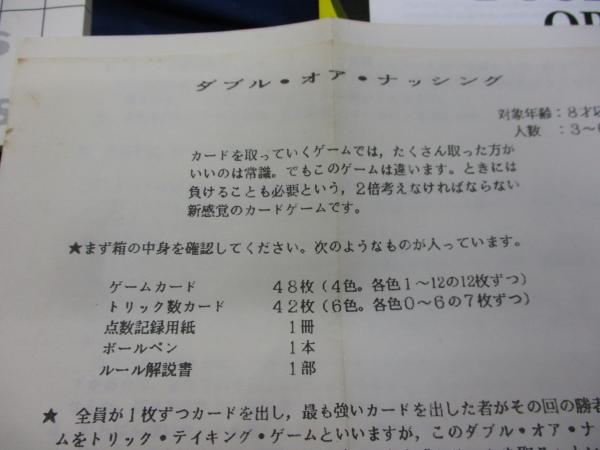 ダブル・オア・ナッシング
対象年齢：8才以
人数　：3〜6
カードを取っていくゲームでは，たくさん取った方が
いいのは常識。でもこのゲームは違います。ときには
負けることも必要という，2倍考えなければならない
新感覚のカードゲームです。
★まず箱の中身を確認してください。次のようなものが入っています。
ゲームカード　48枚（4色。各色1〜12の12枚ずつ）
トリック数カード　42枚（6色。各色0〜6の7枚ずつ）
点数記録用紙　1冊
ボールペン　1本
ルール解説書　1部
★　全員が1枚ずつカードを出し，最も強いカードを出した者がその回の勝者
ムをトリック・テイキング・ゲームといいますが，このダブル・オア・ナ